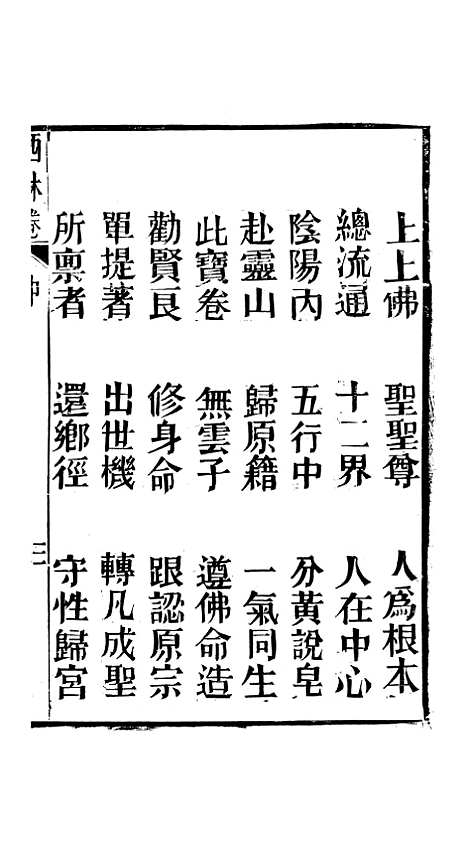 上上佛 聖聖尊 人為根本
總流通 十二界 人在中心
陰陽內 五行中 分黃說皂
赴靈山 歸原籍 一氣同生
此寶卷 無雲子 遵佛命造
勸賢良 修身命 跟認原宗
單提著 出世機 轉凡成聖
所禀者 還鄉徑 守性歸宮
林卷